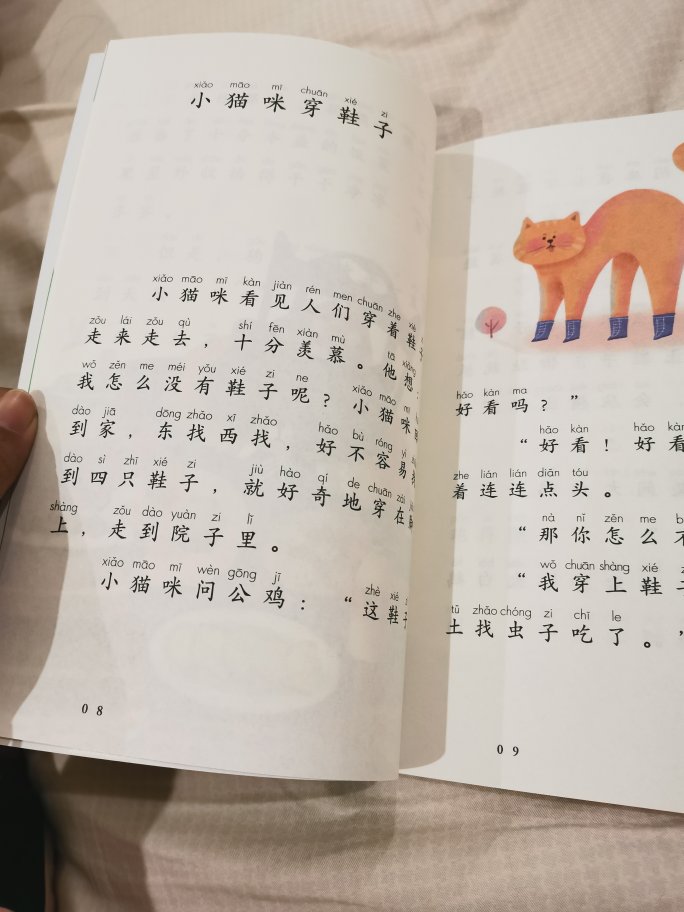 xiǎo māo mī chuān xié zi
小猫咪穿鞋子
xiǎo māo mī kàn jiàn rén men chuān zhe xié
小猫咪看见人们穿着鞋子
zǒu lái zǒu qù shí fēn xiàn mù tā xiǎng
走来走去，十分羡慕。他想
wǒ zěn me méi yǒu xié zi ne xiǎo māo mī
我怎么没有鞋子呢？小猫咪
dào jiā dōng zhǎo xī zhǎo hǎo bù róng yì
到家，东找西找，好不容易
dào sì zhī xié zi jiù hào qí de chuān zài
到四只鞋子，就好奇地穿在
shàng zǒu dào yuàn zi lǐ
上，走到院子里。
xiǎo māo mī wèn gōng jī zhè xié
小猫咪问公鸡：“这鞋子
08
hǎo kàn ma
好看吗？”
hǎo kàn hǎo kàn
“好看！好看
zhe lián lián diǎn tóu
着连连点头。
nà nǐ zěn me b
“那你怎么不
wǒ chuān shàng xié z
“我穿上鞋子
tǔ zhǎo chóng zi chī le
土找虫子吃了。”
09